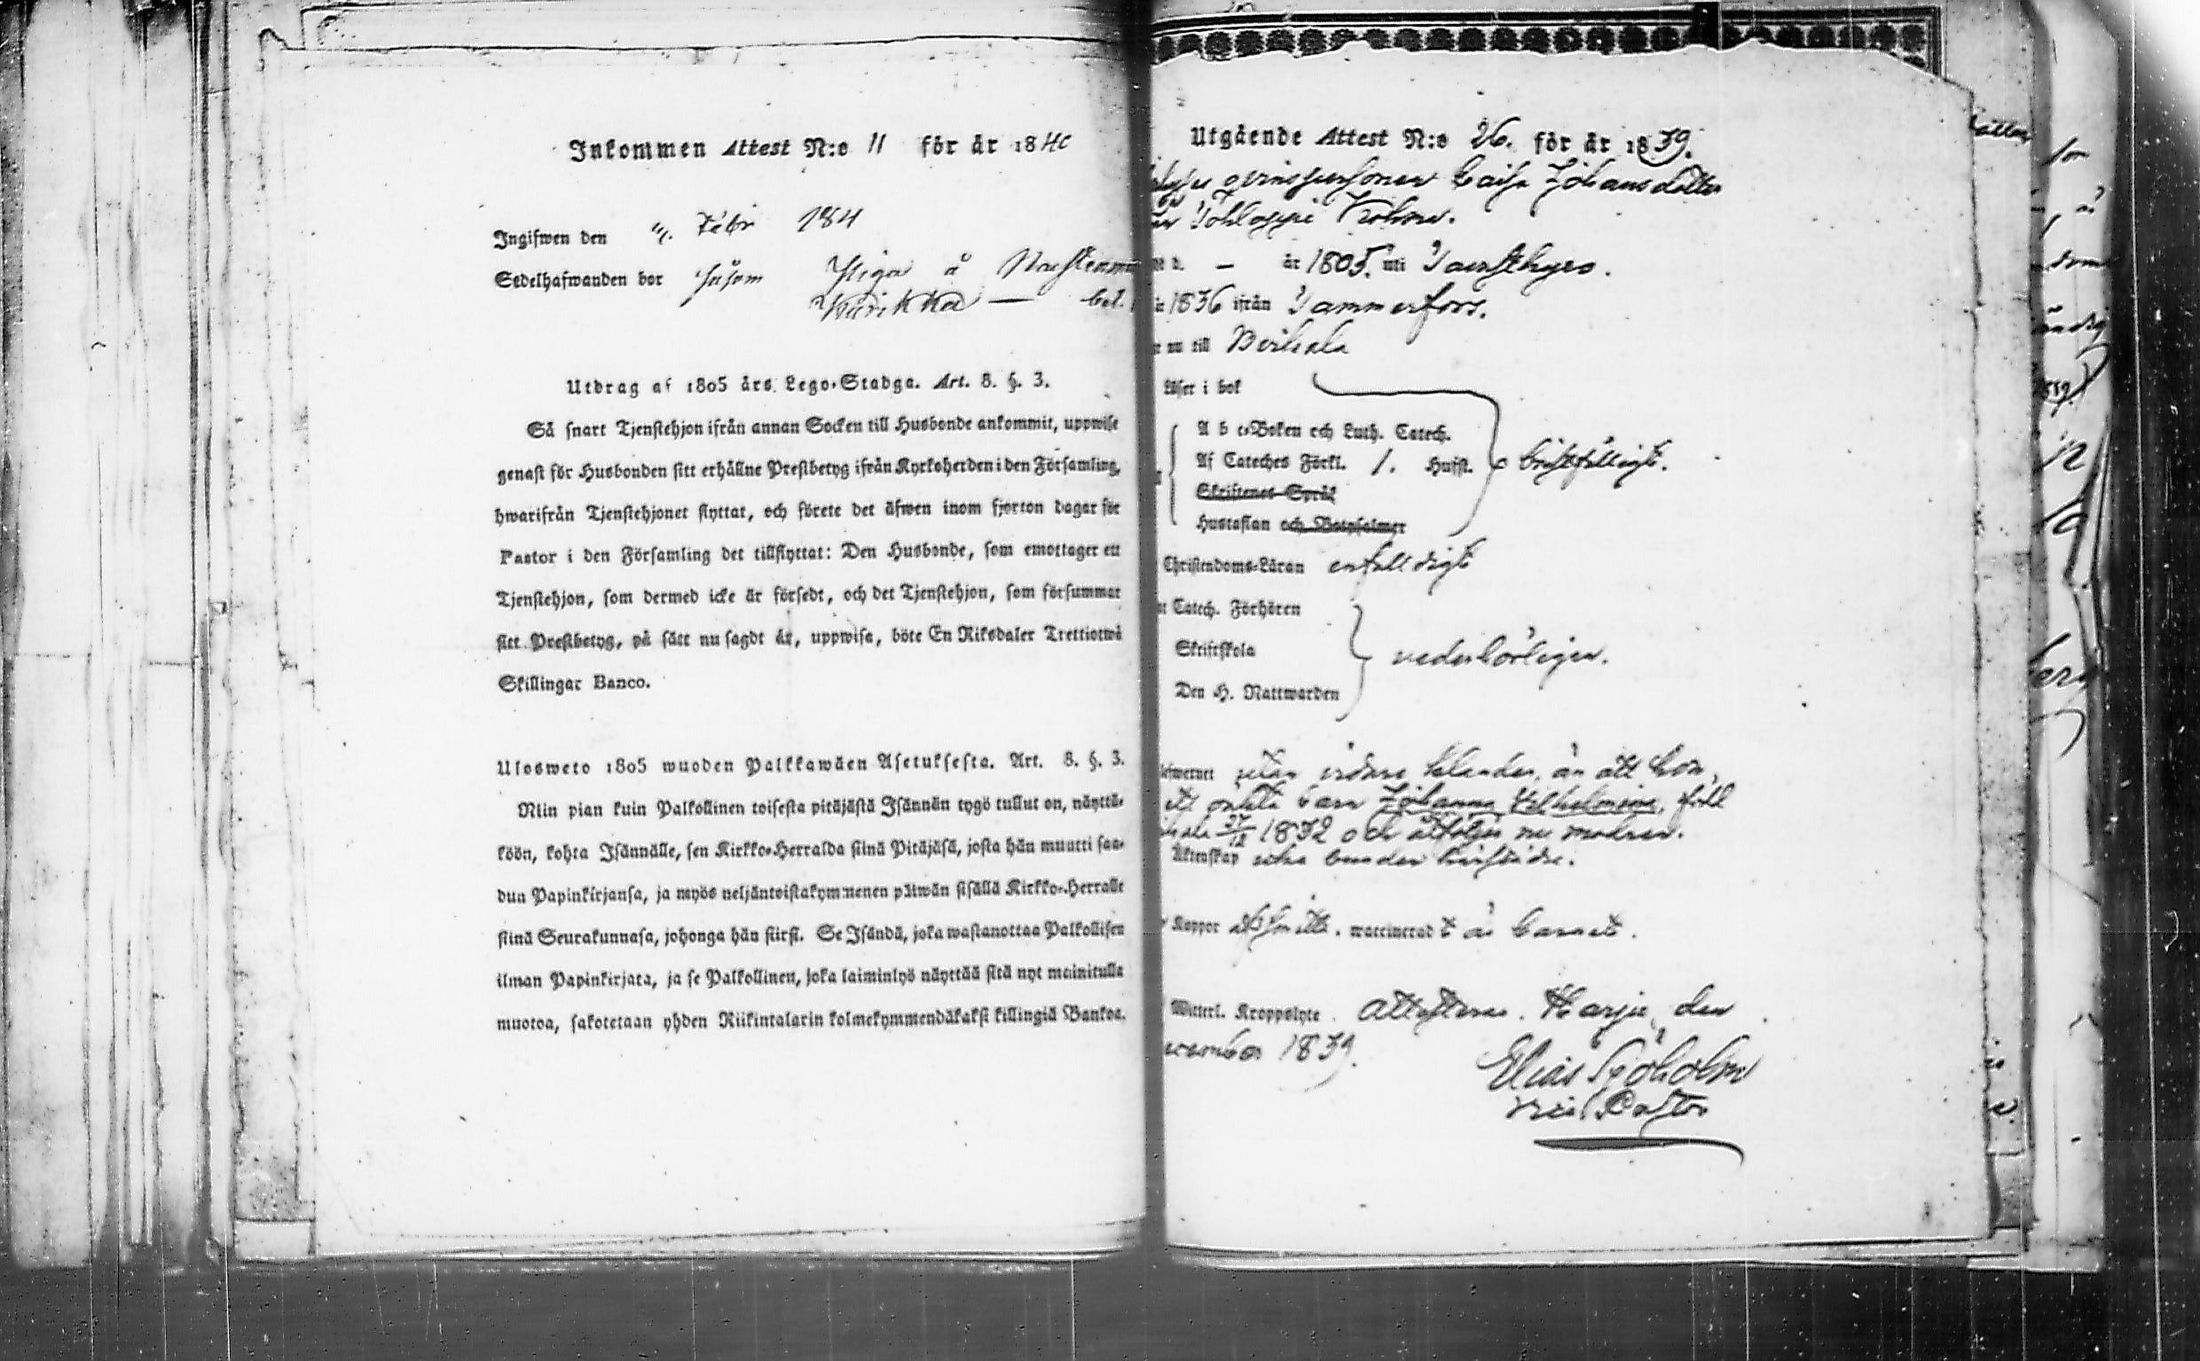 Inkommen Attest N:o 11 för år 1840
Ingifwen den Febr 184
Sedelhafwanden bor såsom Piga å
bet.
Utdrag af 1805 års Lego-Stadga. Art. 8. §. 3.
Så snart Tjenstehjon ifrån annan Socken till Husbonde ankommit, uppwise
genast för Husbonden sitt erhållne Prestbetyg ifrån Kyrkoherden i den Församling,
hwarifrån Tjenstehjonet flyttat, och förete det äfwen inom fjorton dagar för
Pastor i den Församling det tillflyttat: Den Husbonde, som emottager ett
Tjenstehjon, som dermed icke är försedt, och det Tjenstehjon, som försummar
sitt Prestbetyg, på sätt nu sagdt är, uppwisa, böte En Riksdaler Trettiotwå
Skillingar Banco.
Ulosweto 1805 wuoden Palkkawäen Asetuksesta. Art. 8. §. 3.
Niin pian kuin Palkollinen toisesta pitäjästä Isännän tygö tullut on, näyttä-
köön, kohta Isännälle, sen Kirkko-Herralda siinä Pitäjäsä, josta hän muutti saa-
dun Papinkirjansa, ja myös neljäntoistakymmenen päiwän sisällä Kirkko-Herralle
siinä Seurakunnasa, johonga hän siirsi. Se Isändä, joka wastanottaa Palkollisen
ilman Papinkirjata, ja se Palkollinen, joka laiminlyö näyttää sitä nyt mainitulla
muotoa, sakotetaan yhden Riikintalarin kolmekymmendäkaksi killingiä Bankoa.
Utgående Attest N:o 26. för år 1839.
qvinspersonen Caisa Johansdotter
Tohloppi Krohn.
d. — år 1805. uti Tavastkyro.
1836 ifrån Tammerfors.
nu till Birkala
Läser i bok
A b c-Boken och Luth. Catech.
Af Cateches Förkl. 1. Hufst. bristfälligt.
Skriftenes Språk
Hustaflan och Botpsalmer
Christendoms-Läran enfalldigt
Catech. Förhören
Skriftskola vederbörligen.
Den H. Nattwarden
utan vidare klander, än att hon,
ett oäkta barn Johanna Vilhelmina, född
27/12 1832 och åtföljer nu modren.
Äktenskap
Koppor waccinerad barnet.
Witterl. Kroppslyte. Attesteras. Harju den
1839.
Elias Sjöholm
Vice Pastor